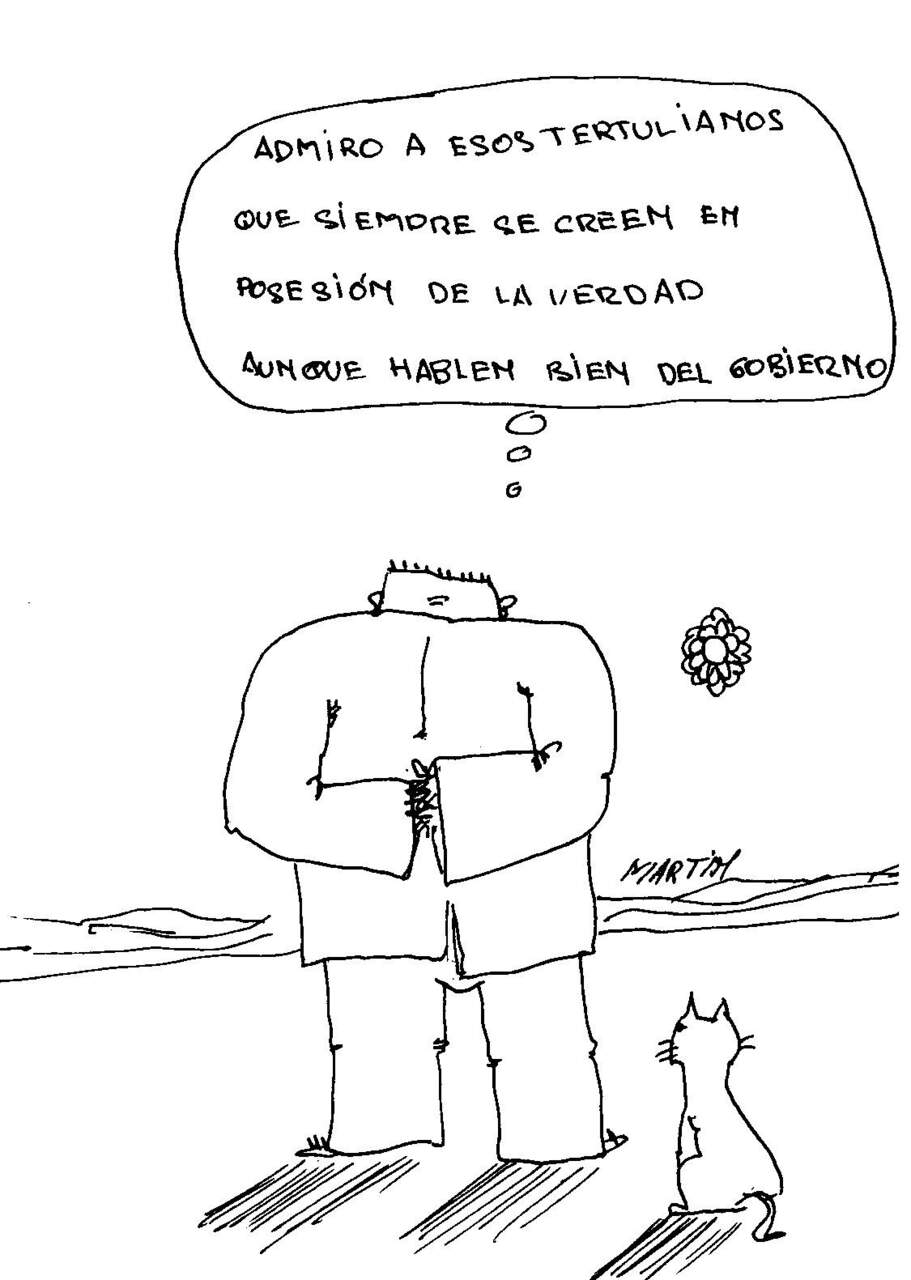 ADMIRO A ESOS TERTULIANOS
QUE SIEMPRE SE CREEN EN
POSESIÓN DE LA VERDAD
AUNQUE HABLEN BIEN DEL GOBIERNO
MARTÍN